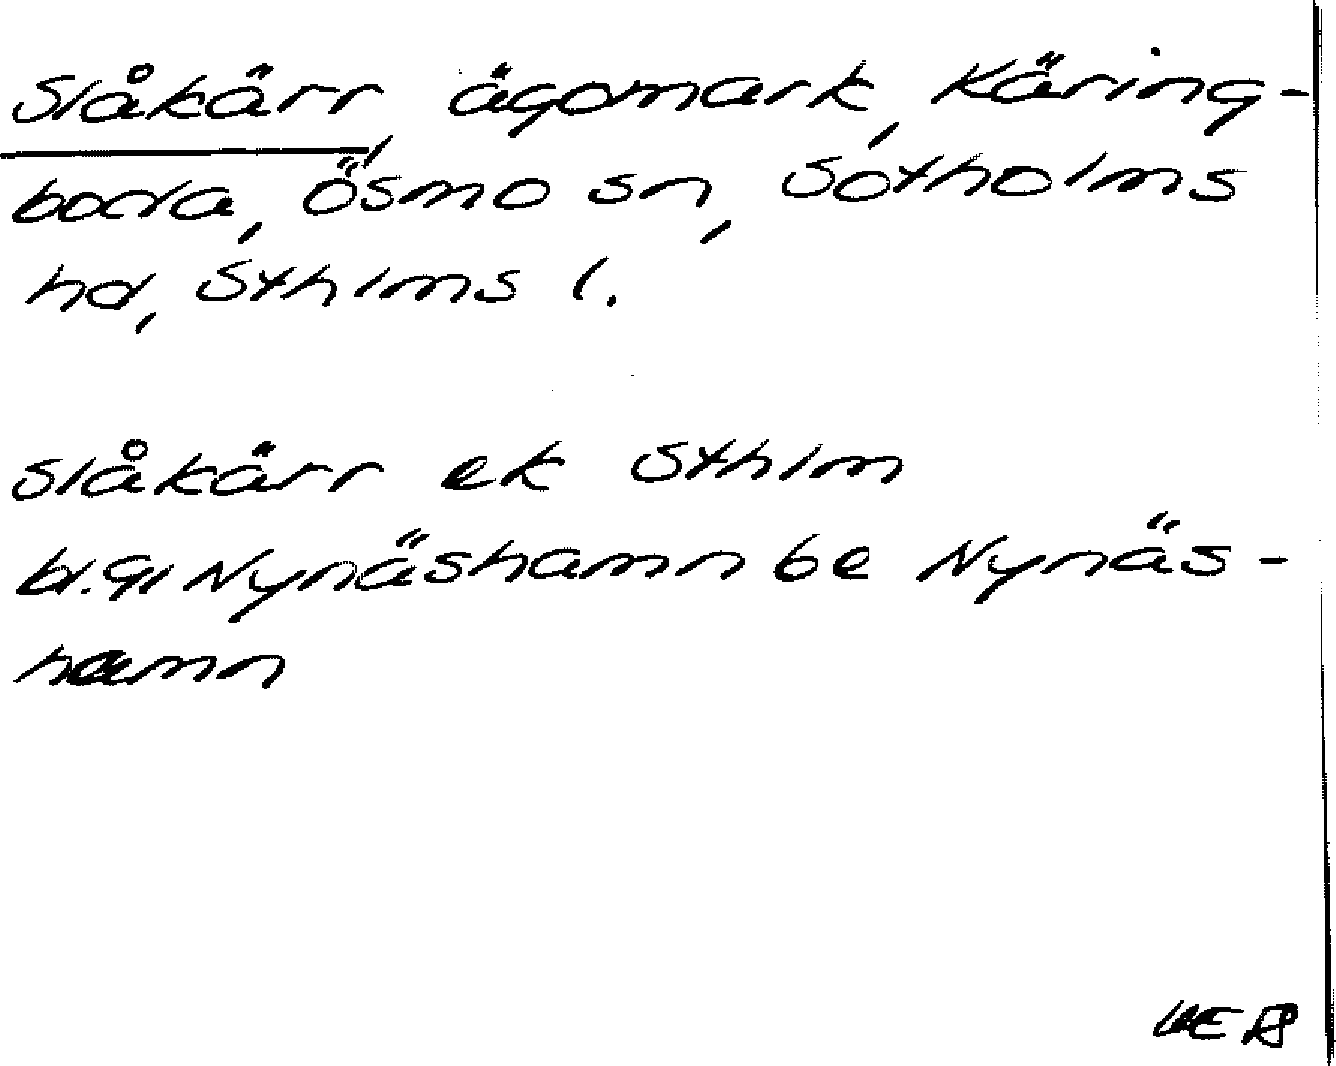 Slåkärr, ägomark, Käring-
boda, Ösmo sn, Sotholms
hd, Sthlms l.
Slåkärr ek Sthlm
bl. 91 Nynäshamn 6e Nynäs-
hamn